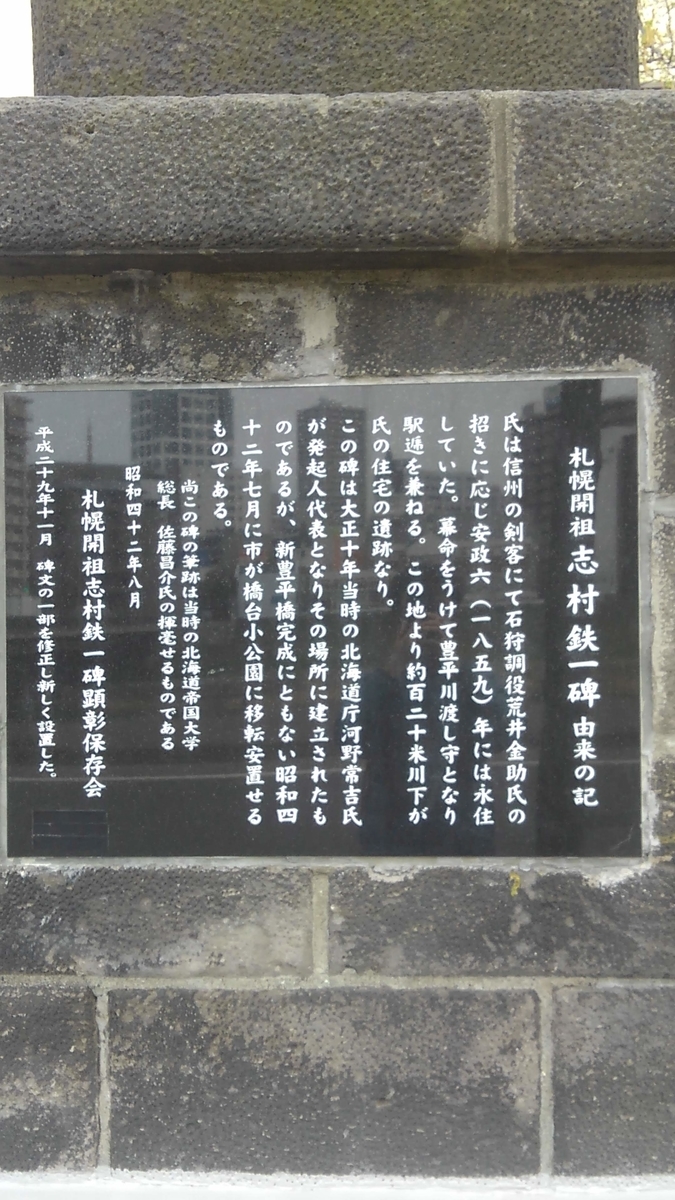 札幌開祖 志村鉄一碑 由来の記
氏は信州の剣客にて石狩調役荒井金助氏の
招きに応じ安政六（一八五九）年には永住
していた。幕命をうけて豊平川渡し守となり
駅逓を兼ねる。この地より約百二十米川下が
氏の住宅の遺跡なり。
この碑は大正十年当時の北海道庁河野常吉氏
が発起人代表となりその場所に建立されたも
のであるが、新豊平橋完成にともない昭和四
十二年七月に市が橋台小公園に移転安置せる
ものである。
尚この碑の筆跡は当時の北海道帝国大学
総長 佐藤昌介氏の揮毫せるものである
昭和四十二年八月
札幌開祖志村鉄一碑顕彰保存会
平成二十九年十一月 碑文の一部を修正し新しく設置した。